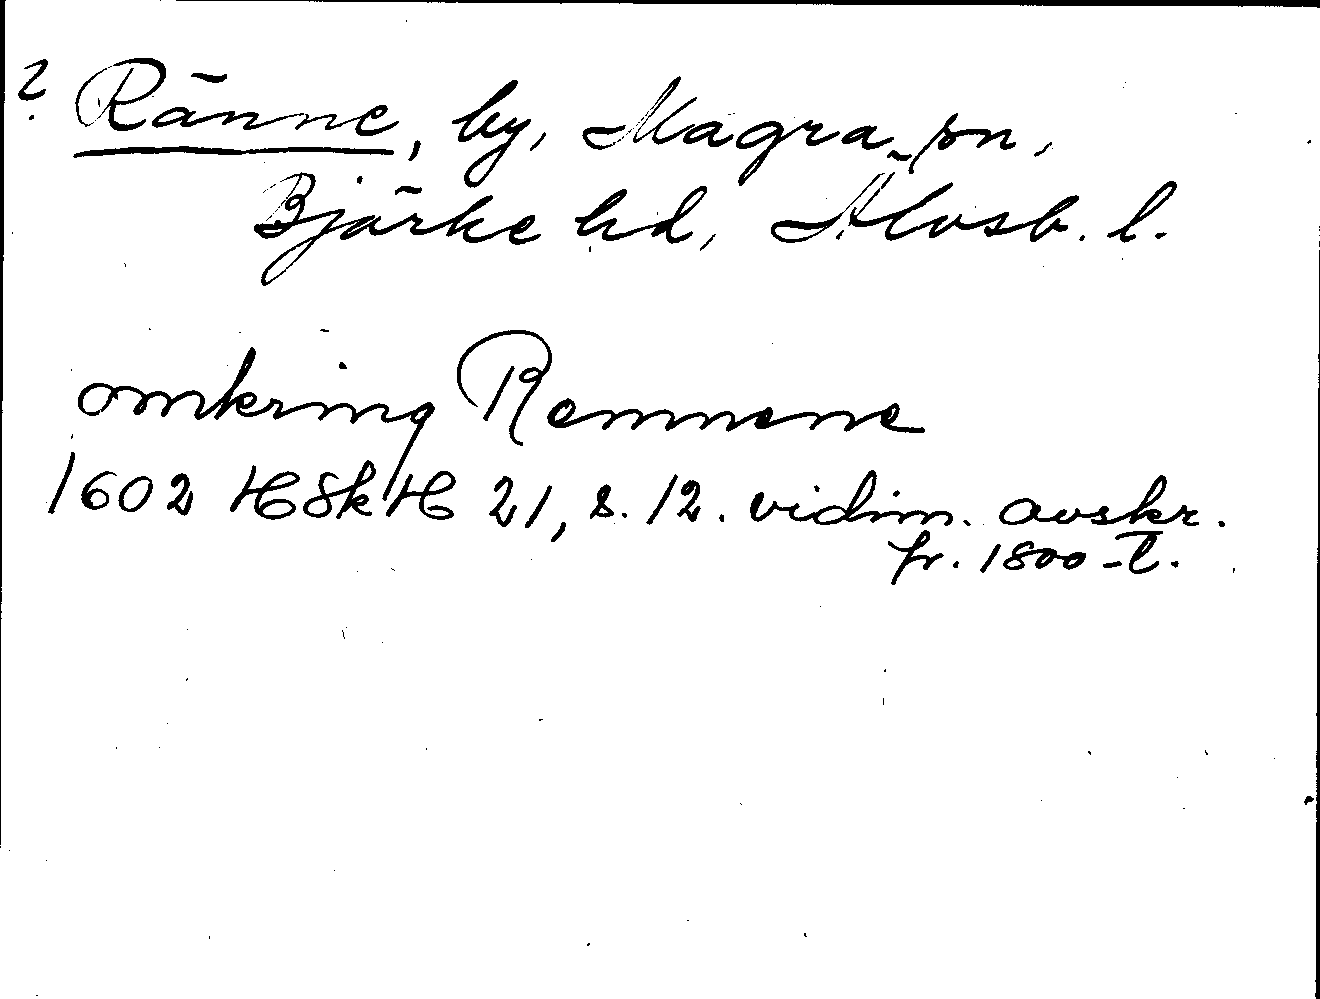 ? Ränne, by, Magra sn,
Bjärke hd, Älvsb. l.
omkring Remmene
1602 HSkH 21, s. 12. vidim. avskr.
fr. 1800-t.